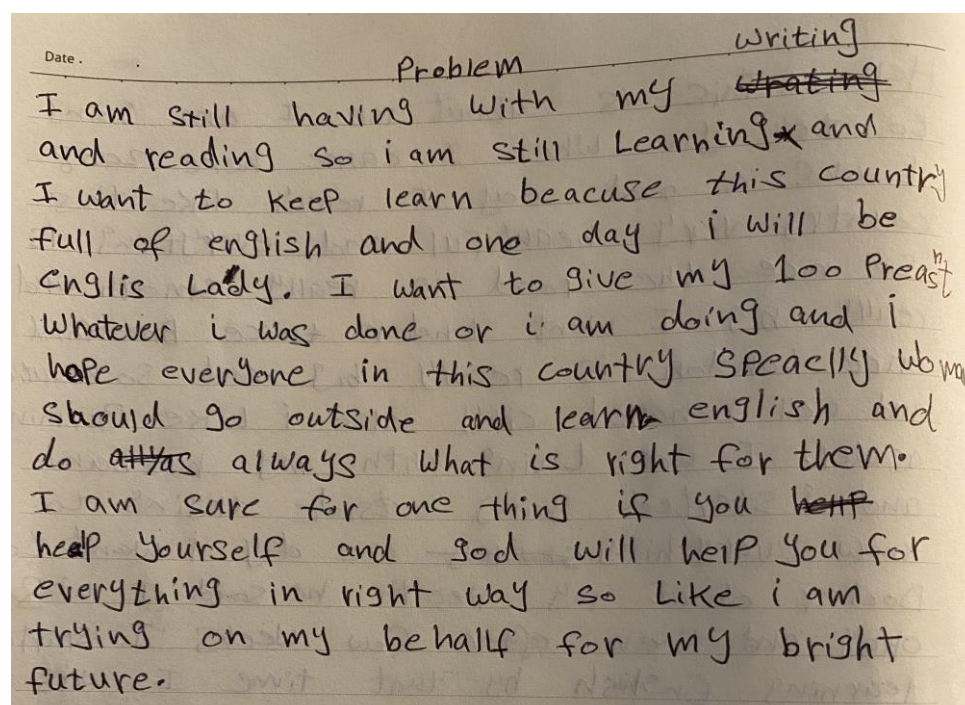 Date .
Problem writing
I am still having with my wrating
and reading so i am still Learning and
I want to keep learn beacuse this country
full of english and one day i will be
Englis Lady. I want to give my 100 Preasnt
whatever i was done or i am doing and i
hope everyone in this country speaclly woman
should go outside and learn english and
do allyas always what is right for them.
I am sure for one thing if you help
help yourself and god will help you for
everything in right way so like i am
trying on my behallf for my bright
future.